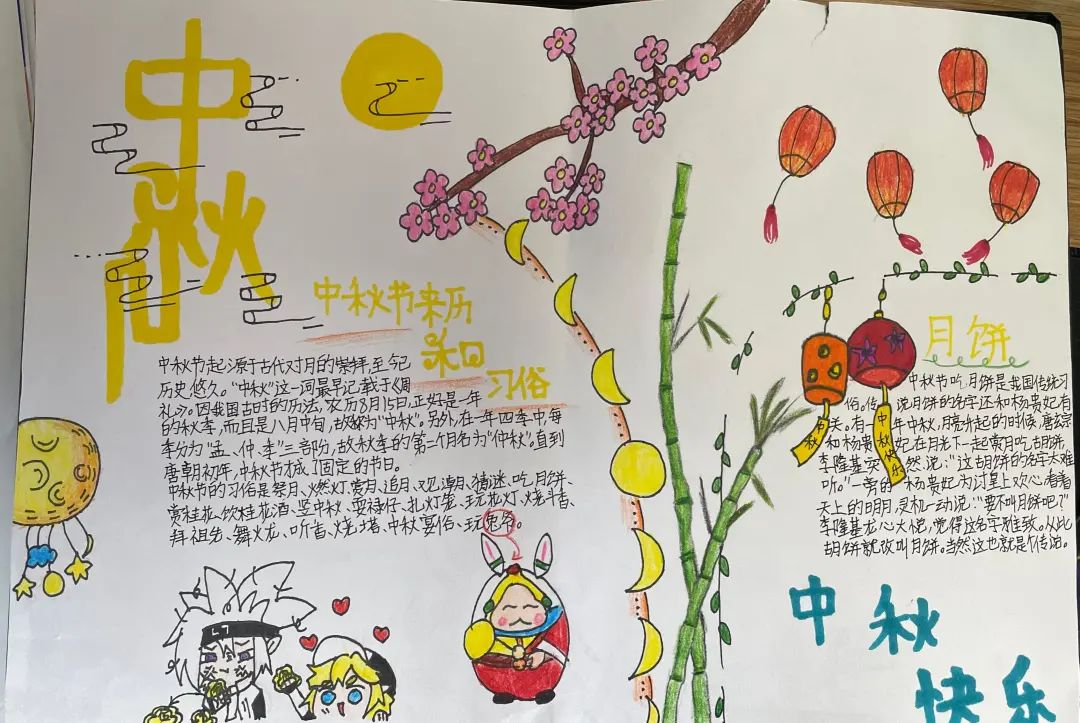 中秋
中秋节来历
和
习俗
中秋节起源于古代对月的崇拜,至今已
历史悠久。“中秋”这一词最早记载于《周
礼》。因我国古时的历法,农历8月15日,正好是一年
的秋季,而且是八月中旬,故称为“中秋”。另外,在一年四季中,每
季分为“孟、仲、季”三部分,故秋季的第二个月名为“仲秋”。直到
唐朝初年,中秋节才成了固定的节日。
中秋节的习俗是祭月、燃灯、赏月、追月、观潮、猜谜、吃月饼、
赏桂花、饮桂花酒、竖中秋、耍禄仔、扎灯笼、玩花灯、烧斗香、
拜祖先、舞火龙、听香、烧塔、中秋宴俗、玩兔爷。
月饼
中秋节吃月饼是我国传统习
俗。传说月饼的名字还和杨贵妃有
关。有一年中秋,月亮升起的时候,唐玄宗
和杨贵妃在月光下一起赏月吃胡饼,
李隆基突然说:“这胡饼的名字太难
听。”一旁的杨贵妃为讨皇上欢心,看着
天上的明月,灵机一动说:“要不叫月饼吧?”
李隆基龙心大悦,觉得这名字雅致。从此
胡饼就改叫月饼。当然这也就是个传说。
中秋
中秋快乐
中秋
快乐